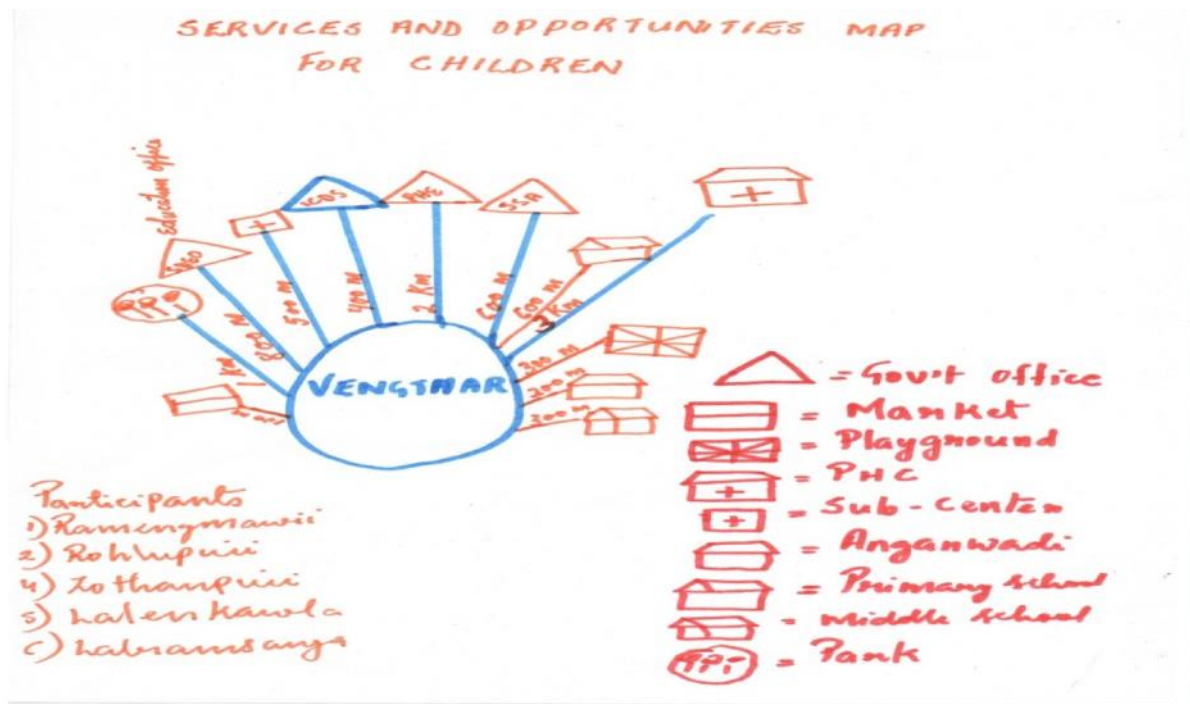 SERVICES AND OPPORTUNITIES MAP
FOR CHILDREN
Education office
SDEO
ICDS
PHE
SSA
1 KM
800 M
500 M
400 M
2 KM
600 M
600 M
3 KM
300 M
200 M
200 M
VENGTHAR
= Gov't office
= Market
= Playground
= PHC
= Sub-Center
= Anganwadi
= Primary school
= middle school
= Park
Participants
1) Ramengmawii
2) Rohlupuii
4) Zothanpuii
5)